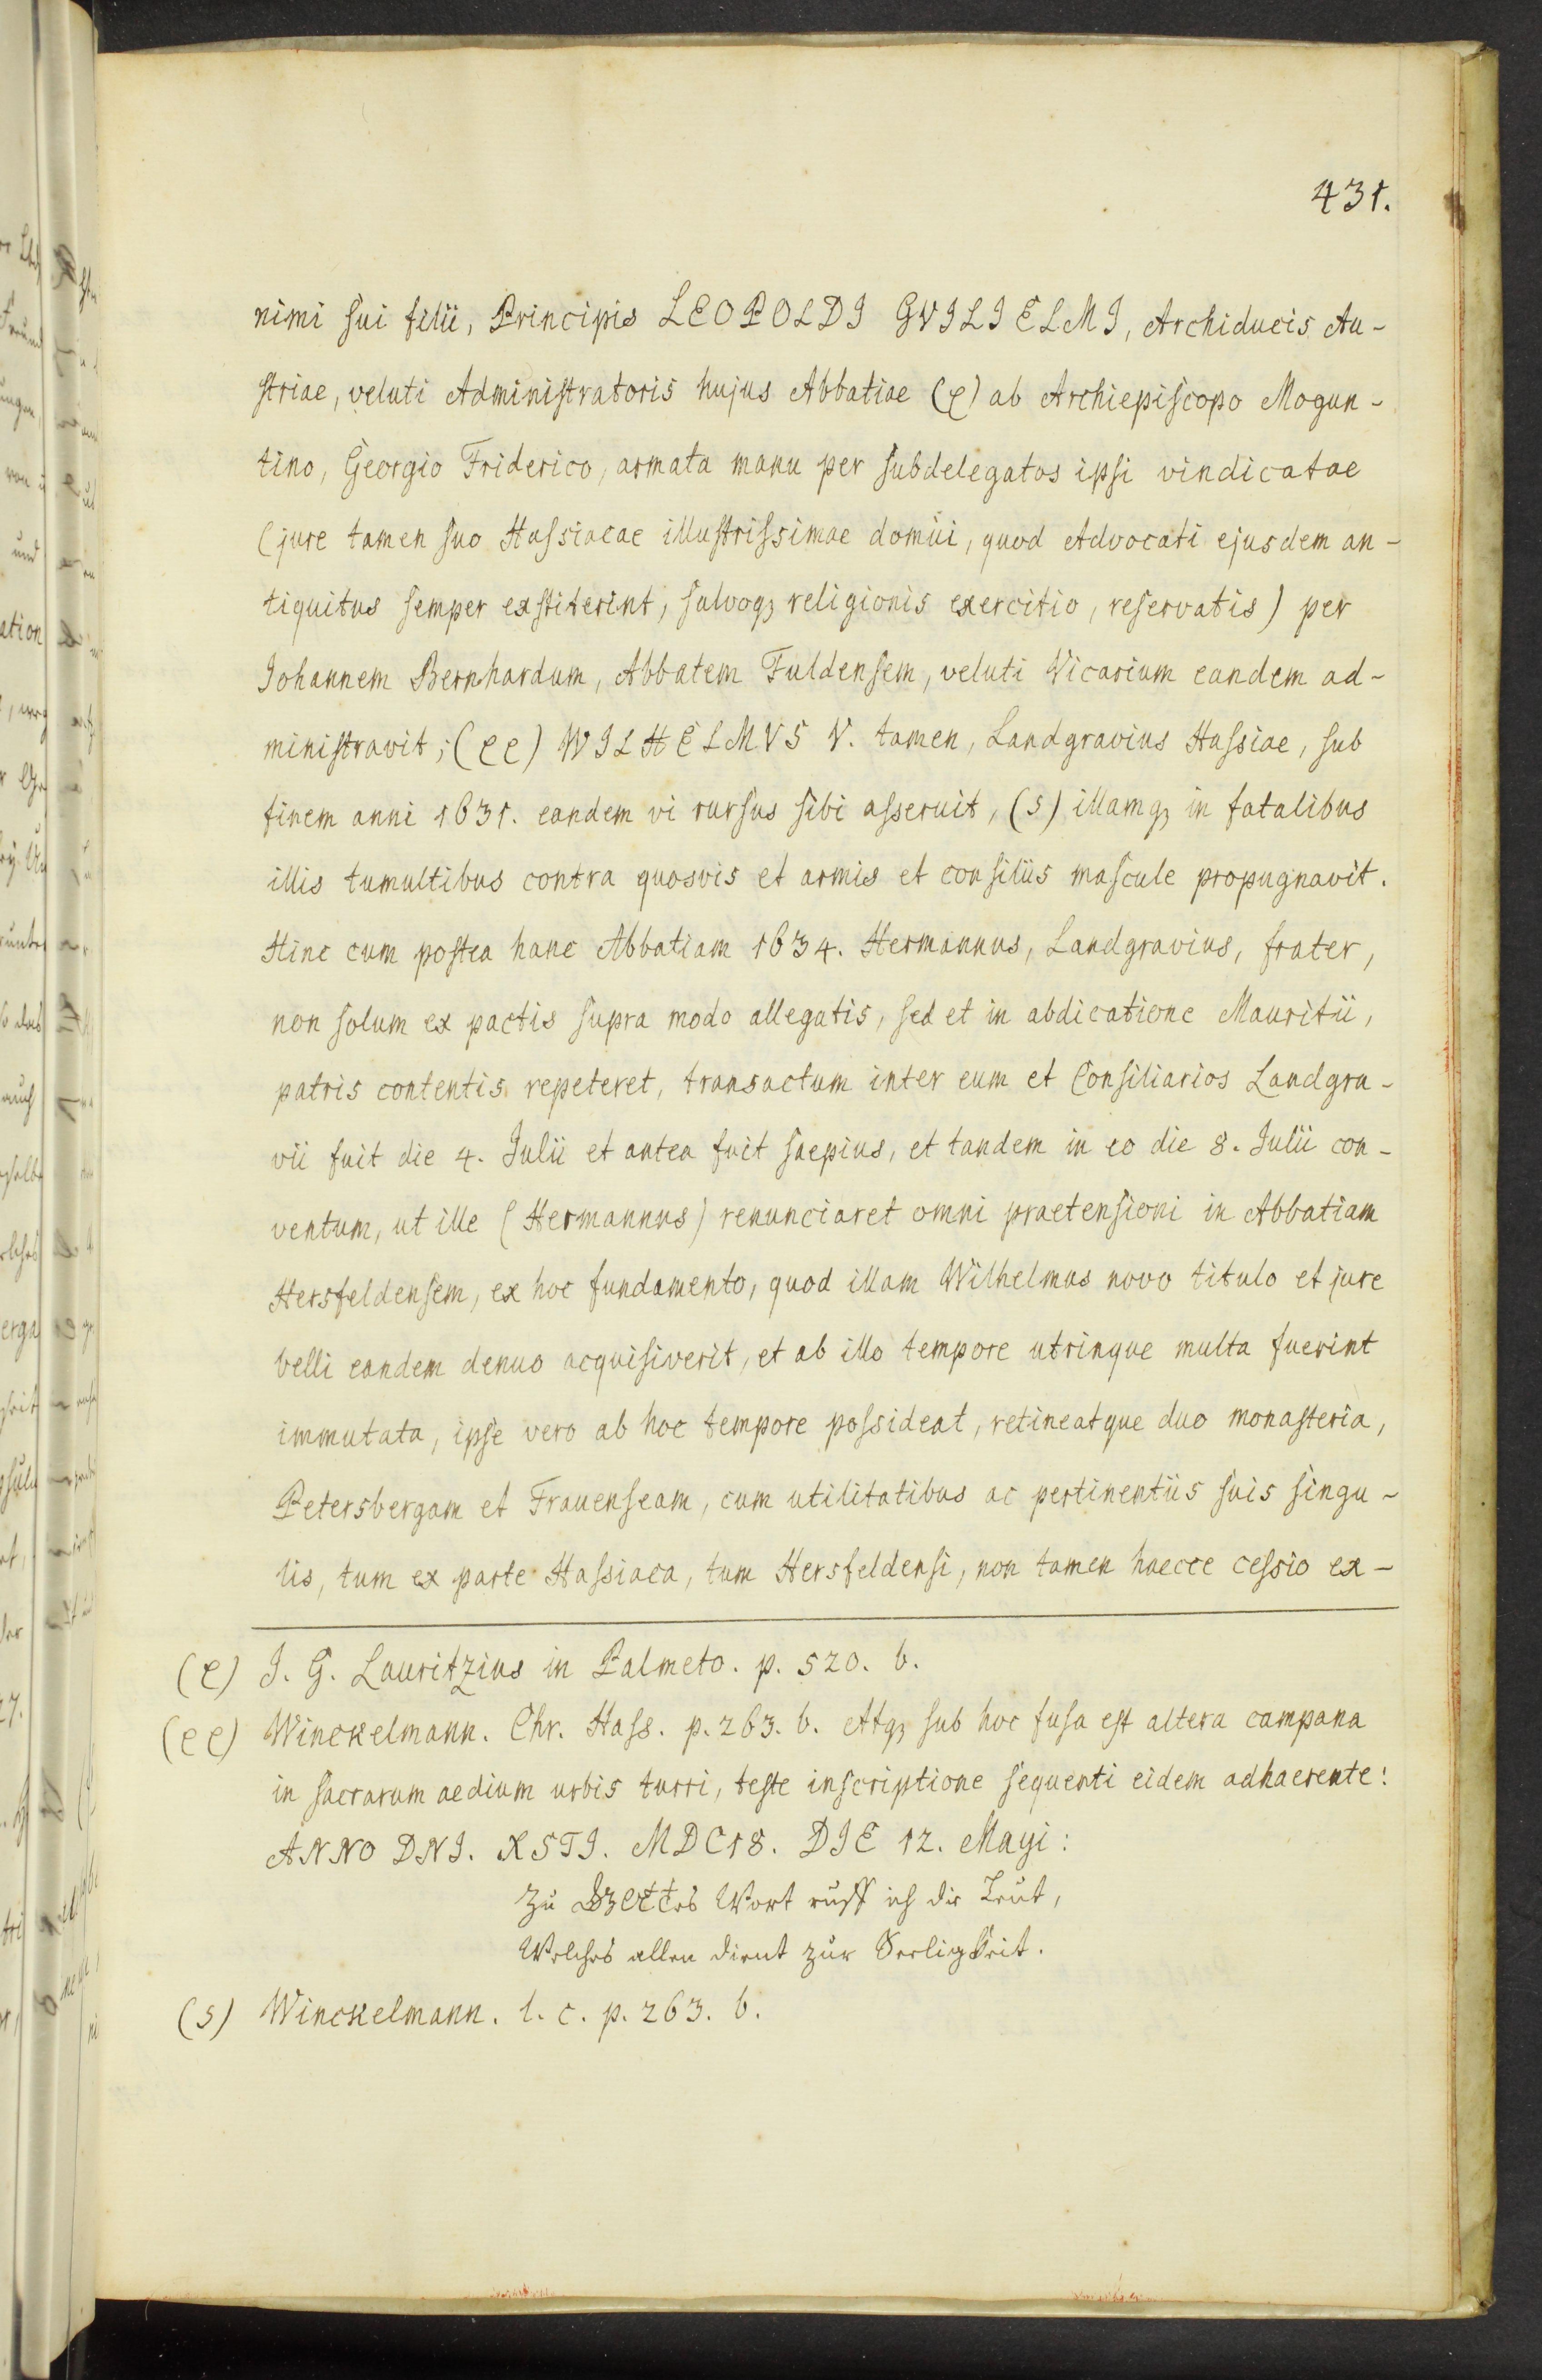 431.
nimi sui filii, Principis LEOPOLDI GVILIELMI, Archiducis Au-
striae, veluti Administratoris hujus Abbatiae (e) ab Archiepiscopo Mogun-
tino, Georgio Friderico, armata manu per subdelegatos ipsi vindicatae
(jure tamen suo Hassiacae illustrissimae domui, quod Advocati ejusdem an-
tiquitus semper exstiterint, salvoq; religionis exercitio, reservatis) per
Johannem Bernhardum, Abbatem Fuldensem, veluti Vicarium eandem ad-
ministravit; (ee) WILHELMVS V. tamen, Landgravius Hassiae, sub
finem anni 1631. eandem vi rursus sibi asseruit, (s) illamq; in fatalibus
illis tumultibus contra quosvis et armis et consiliis mascule propugnavit.
Hinc cum postea hanc Abbatiam 1634. Hermannus, Landgravius, frater,
non solum ex pactis supra modo allegatis, sed et in abdicatione Mauritii,
patris contentis repeteret, transactum inter eum et Consiliarios Landgra-
vii fuit die 4. Julii et antea fuit saepius, et tandem in eo die 8. Julii con-
ventum, ut ille (Hermannus) renunciaret omni praetensioni in Abbatiam
Hersfeldensem, ex hoc fundamento, quod illam Wilhelmus novo titulo et jure
belli eandem denuo acquisiverit, et ab illo tempore utrinque multa fuerint
immutata, ipse vero ab hoc tempore possideat, retineatque duo monasteria,
Petersbergam et Frauenseam, cum utilitatibus ac pertinentiis suis singu-
lis, tum ex parte Hassiaca, tum Hersfeldensi, non tamen haecce cessio ex-
(e) J. G. Lauritzius in Palmeto. p. 520. b.
(ee) Winckelmann. Chr. Hass. p. 263. b. Atq; sub hoc fusa est altera campana
in sacrarum aedium urbis turri, teste inscriptione sequenti eidem adhaerente:
ANNO DNI. XSTI. MDC18. DIE 12. Mayi:
Zu Gottes Wort ruff ich die Leut,
Welches allen dient zur Seeligkeit.
(s) Winckelmann. l. c. p. 263. b.